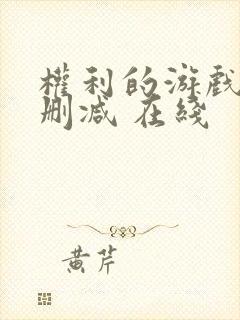 權利的游戲
删减 在綫
黄芹